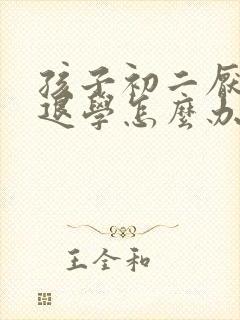 孩子初二厌
退學怎麼办
王全和